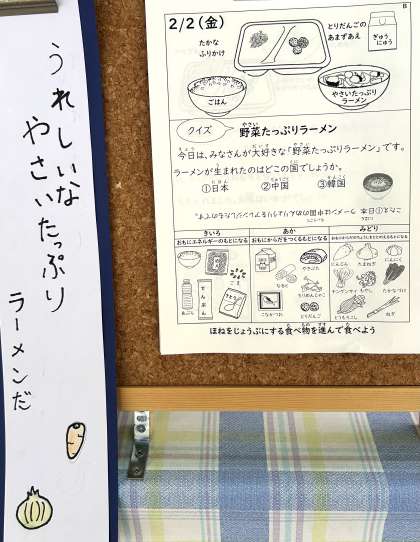 うれしいな
やさいたっぷり
ラーメンだ
B
2/2(金)
たかな
ふりかけ
とりだんごの
あまずあえ
ぎゅう
にゅう
ごはん
やさいたっぷり
ラーメン
クイズ
野菜たっぷりラーメン
今日は、みなさんが大好きな「野菜たっぷりラーメン」です。
ラーメンが生まれたのはどこの国でしょうか。
①日本 ②中国 ③韓国
きいろ あか みどり
おもにエネルギーのもとになる おもにからだをつくるもとになる
ごま
でんぷん
なると
やきぶた
とりだんご
にんじん たまねぎ にんにく
もやし たかなづけ
とうもろこし ねぎ
ほねをじょうぶにする食べ物を進んで食べよう